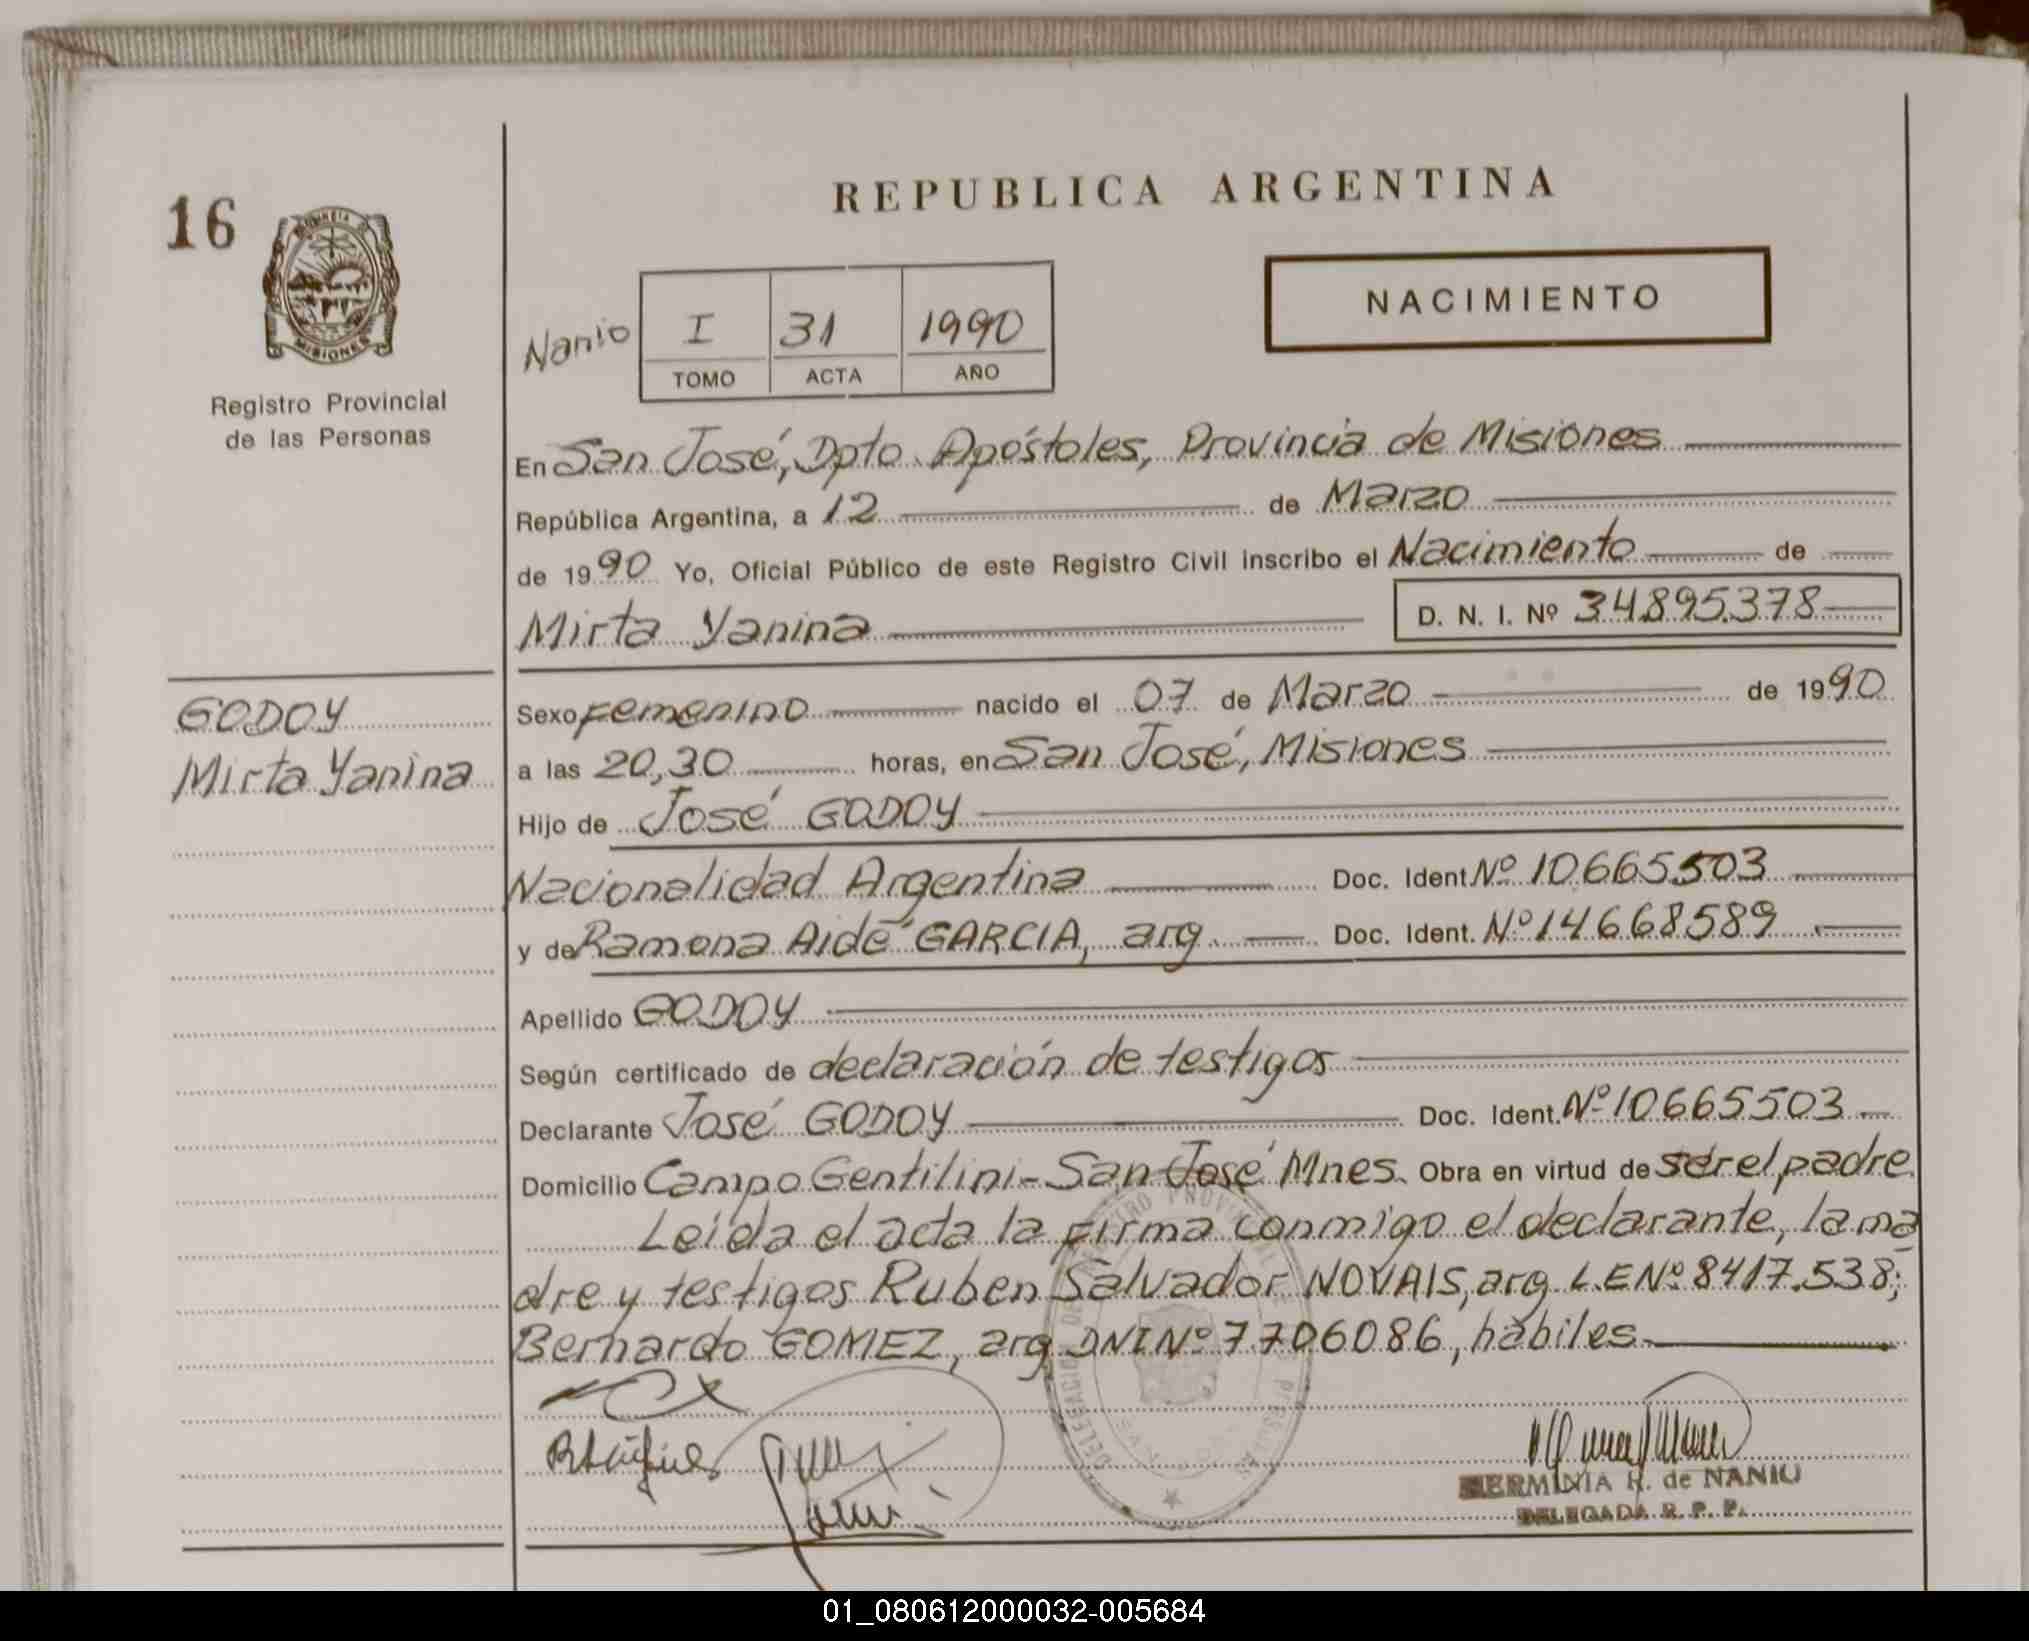 REPUBLICA ARGENTINA
16
PROVINCIA
MISIONES
Registro Provincial
de las Personas
NACIMIENTO
Nanio
I 31 1990
TOMO ACTA AÑO
En San José, Dpto. Apóstoles, Provincia de Misiones
República Argentina, a 12 de Marzo
de 1990 Yo, Oficial Público de este Registro Civil inscribo el Nacimiento de
Mirta Yanina D. N. I. Nº 34.895.378
GODOY
Mirta Yanina
Sexo Femenino nacido el 07 de Marzo de 1990
a las 20,30 horas, en San José, Misiones
Hijo de José GODOY
Nacionalidad Argentina Doc. Ident. Nº 10.665.503
y de Ramona Aidé GARCIA, arg. Doc. Ident. Nº 14668589
Apellido GODOY
Según certificado de declaración de testigos
Declarante José GODOY Doc. Ident. Nº 10665503
Domicilio Campo Gentilini - San José Mnes. Obra en virtud de ser el padre.
Leída el acta la firma conmigo el declarante, la ma
dre y testigos Ruben Salvador NOVAIS, arg. L.E Nº 8417.538;
Bernardo GOMEZ, arg DNI Nº 7706086, hábiles.
HERMINIA R. de NANIO
DELEGADA R. P. P.
01_080612000032-005684